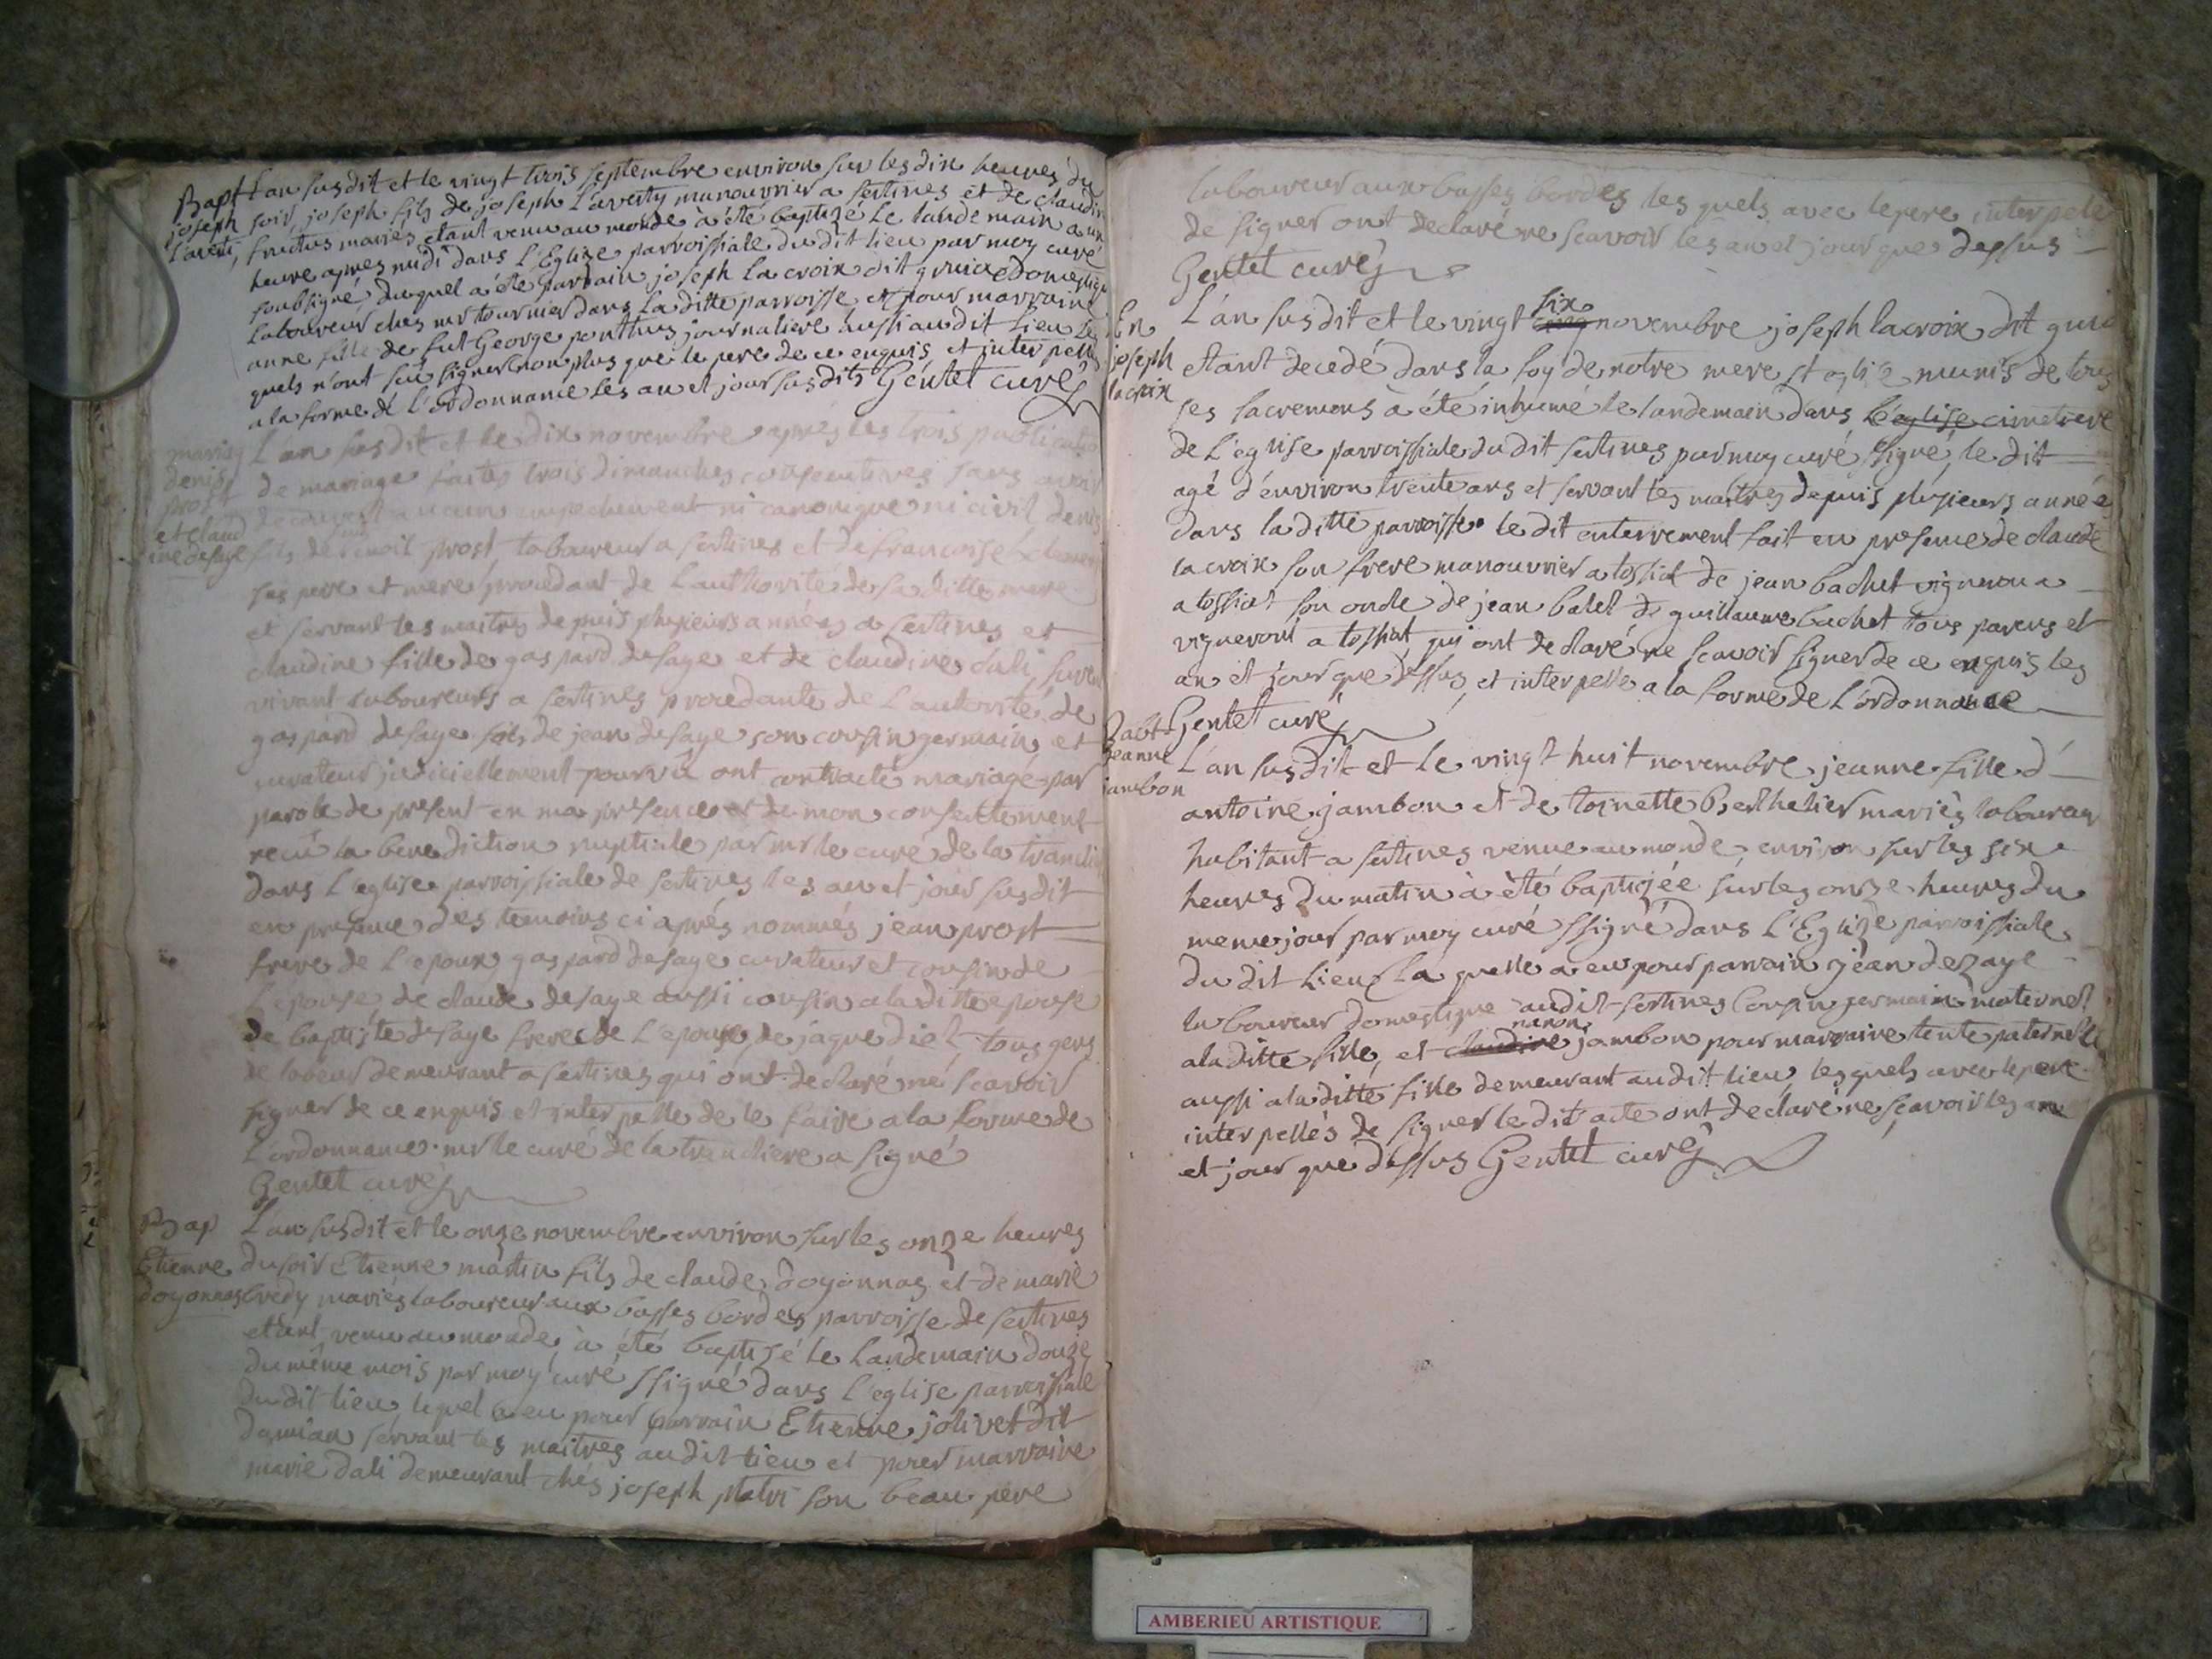 Bapt L'an susdit et le vingt trois septembre environ sur les dix heures du
joseph soir, joseph fils de joseph Laverty manouvrier a sertines et de claudine
Laverti, fructus mariés etant venu au monde à été baptizé le landemain a une
heure apres midi dans l'Eglize parroissiale du dit lieu par moy curé
soubsigné duquel a été parrain joseph la croix dit domestique
laboureur ches mr tournier dans la ditte parroisse et pour marraine
anne fille de fut George ponthus journaliere aussi au dit lieu les
quels n'ont sçu signer non plus que le pere de ce enquis et interpellés
a la forme de l'ordonnance les an et jour susdits Gentet curé
mariag L'an susdit et le dix novembre apres les trois publications
denis de mariage faites trois dimanches consecutives sans avoir
prost decouvert aucun empechement ni canonique ni civil denis
et claud fils de benoit prost laboureur a sertines et de francoise
ine desaye
ses pere et mere procedant de l'authorité de sa ditte mere
et servant les maitres depuis plusieurs années a sertines et
claudine fille de gaspard desaye et de claudine dali, sur
vivant laboureurs a sertines procedante de l'autorité de
gaspard desaye fils de jean desaye son cousin germain et
curateur judiciellement pourvu ont contracté mariage par
parole de present en ma presence et de mon consentement
recu la benediction nuptiale par mr le curé de la tranclie
dans l'eglise parroissiale de sertines les an et jour susdit
en presence des temoins ci aprés nommés jean prost
frere de l'epoux gaspard desaye curateur et cousin de
l'epouse, de claude desaye aussi cousin a la ditte epouse
de baptiste desaye frere de l'epouse, de jaque diet, tous gens
de labeur demeurant a sertines qui ont declaré ne scavoir
signer de ce enquis et interpelle de le faire a la forme de
l'ordonnance. mr le curé de la trancliere a signé
Gentet curé
Bap L'an susdit et le onze novembre environ sur les onze heures
Etienne du soir Etienne martin fils de claude doyonnas et de marie
doyonnas bredy mariés laboureur aux basses bordes parroisse de sertines
etant venu au monde à été baptizé le landemain douze
du même mois par moy curé ssigné dans l'eglise parroissiale
du dit lieu lequel a eu pour parrain Etienne jolivet dit
damian servant les maitres au dit lieu et pour marraine
marie dali demeurant chés joseph son beau pere
laboureur aux basses bordes les quels avec le pere interpelé
de signer ont declaré ne scavoir les an et jour que dessus
Gentet curé
L'an susdit et le vingt six novembre joseph lacroix dit
En joseph lacroix
etant decedé dans la foy de notre mere st eglise munis de tous
ses sacremens à été inhumé le landemain dans l'eglise cimetiere
de l'eglise parroissiale du dit sertines par moy curé ssigné, le dit
agé d'environ trente ans et servant les maitres depuis plusieurs année
dans la ditte parroisse le dit enterrement fait en presence de claude
lacroix son frere manouvrier a tossiat de jean bachet vigneron a
a tossiat son oncle de jean balet de guillaume bachet tous parens et
vigneront a tossiat qui ont declaré ne scavoir signer de ce enquis les
an et jour que dessus et interpellé a la forme de l'ordonnance
Gentet curé
Babt jeanne jambon
L'an susdit et le vingt huit novembre jeanne fille d'
antoine jambon et de toinette Berthelier mariés laboureur
habitant a sertines venue au monde environ sur les six
heures du matin à èté baptizée sur les onze heures du
meme jour par moy curé ssigné dans l'Eglize parroissiale
du dit lieu la quelle a eu pour parrain jean dezaye
laboureur domestique audit sertines cousin germain maternel
a la ditte fille, et claudine nanon jambon pour marraine tente paternelle
aussi a la ditte fille demeurant au dit lieu lesquels avec le pere
interpellés de signer le dit acte ont declaré ne scavoir les an
et jour que dessus Gentet curé
AMBERIEU ARTISTIQUE